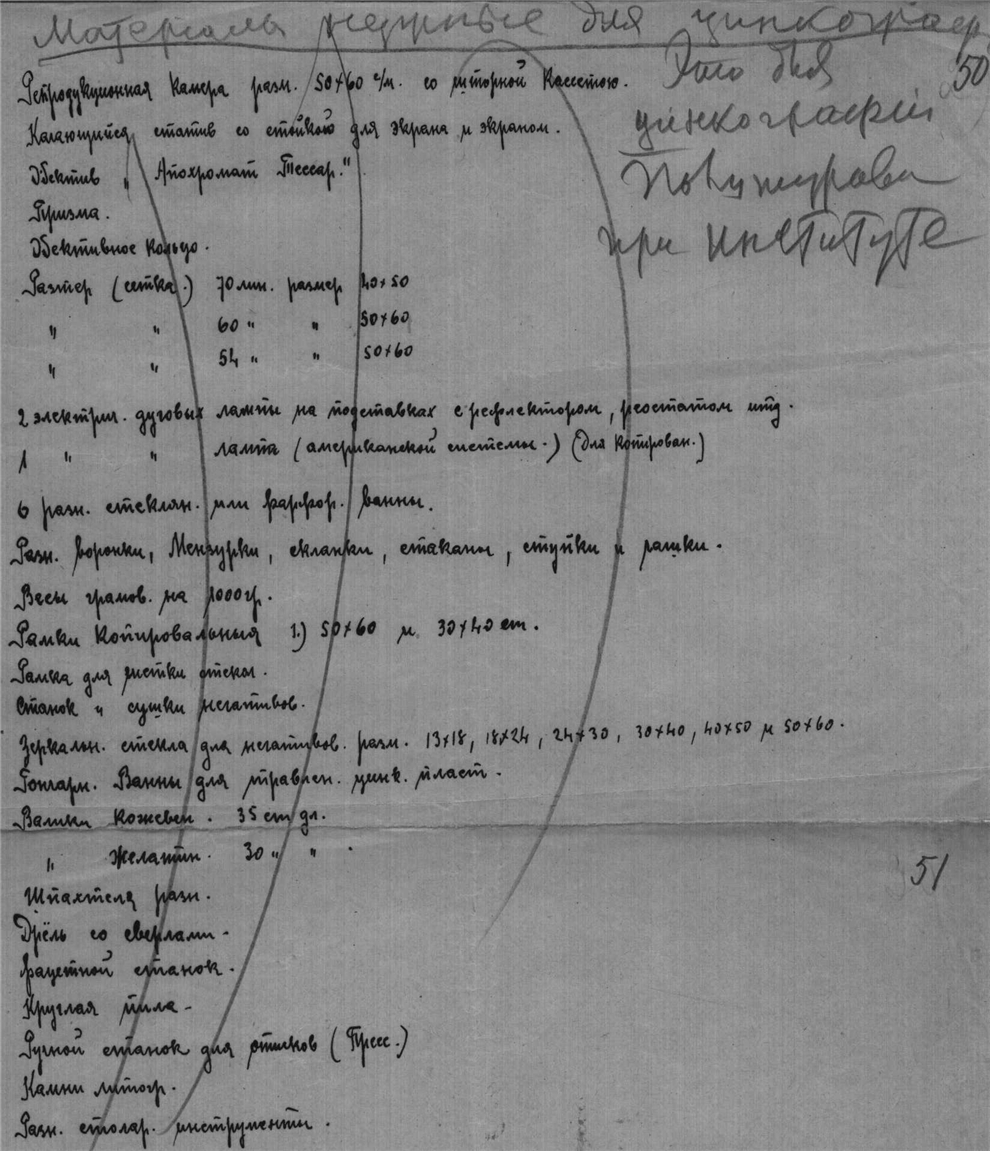 Материалы нужные для цинкограф
50
Это для
цинкографии
при институте
Репродукционная камера разм. 50×60 с/м. со шторной кассетою.
Качающийся статив со стойкой для экрана и экраном.
Обектив „Апохромат Тессар."
Призма.
Обективное кольцо.
Растер (сетка.) 70 лин. размер 40×50
" " 60 " " 50×60
" " 54 " " 50×60
2 электрич. дуговых лампы на подставках с рефлектором, реостатом итд.
1 " " лампа (американской системы.) (для копирован.)
6 разн. стеклян. или фарфор. ванны.
Разн. воронки, Мензурки, склянки, стаканы, ступки и чашки.
Весы грамов. на 1000 гр.
Рамки копировальныя 1.) 50×60 и 30×40 cm.
Рамка для чистки стекол.
Станок и сушки негативов.
Зеркальн. стекла для негативов. разм. 13×18, 18×24, 24×30, 30×40, 40×50 и 50×60.
Гончарн. Ванны для травлен. цинк. пласт.
Валики кожевен. 35 cm дл.
" желатин. 30 " " .
51
Шпахтеля разн.
Дрёль со сверлами.
Фацетной станок.
Круглая пила.
Ручной станок для оттисков (Пресс.)
Камни литогр.
Разн. столяр. инструменты.